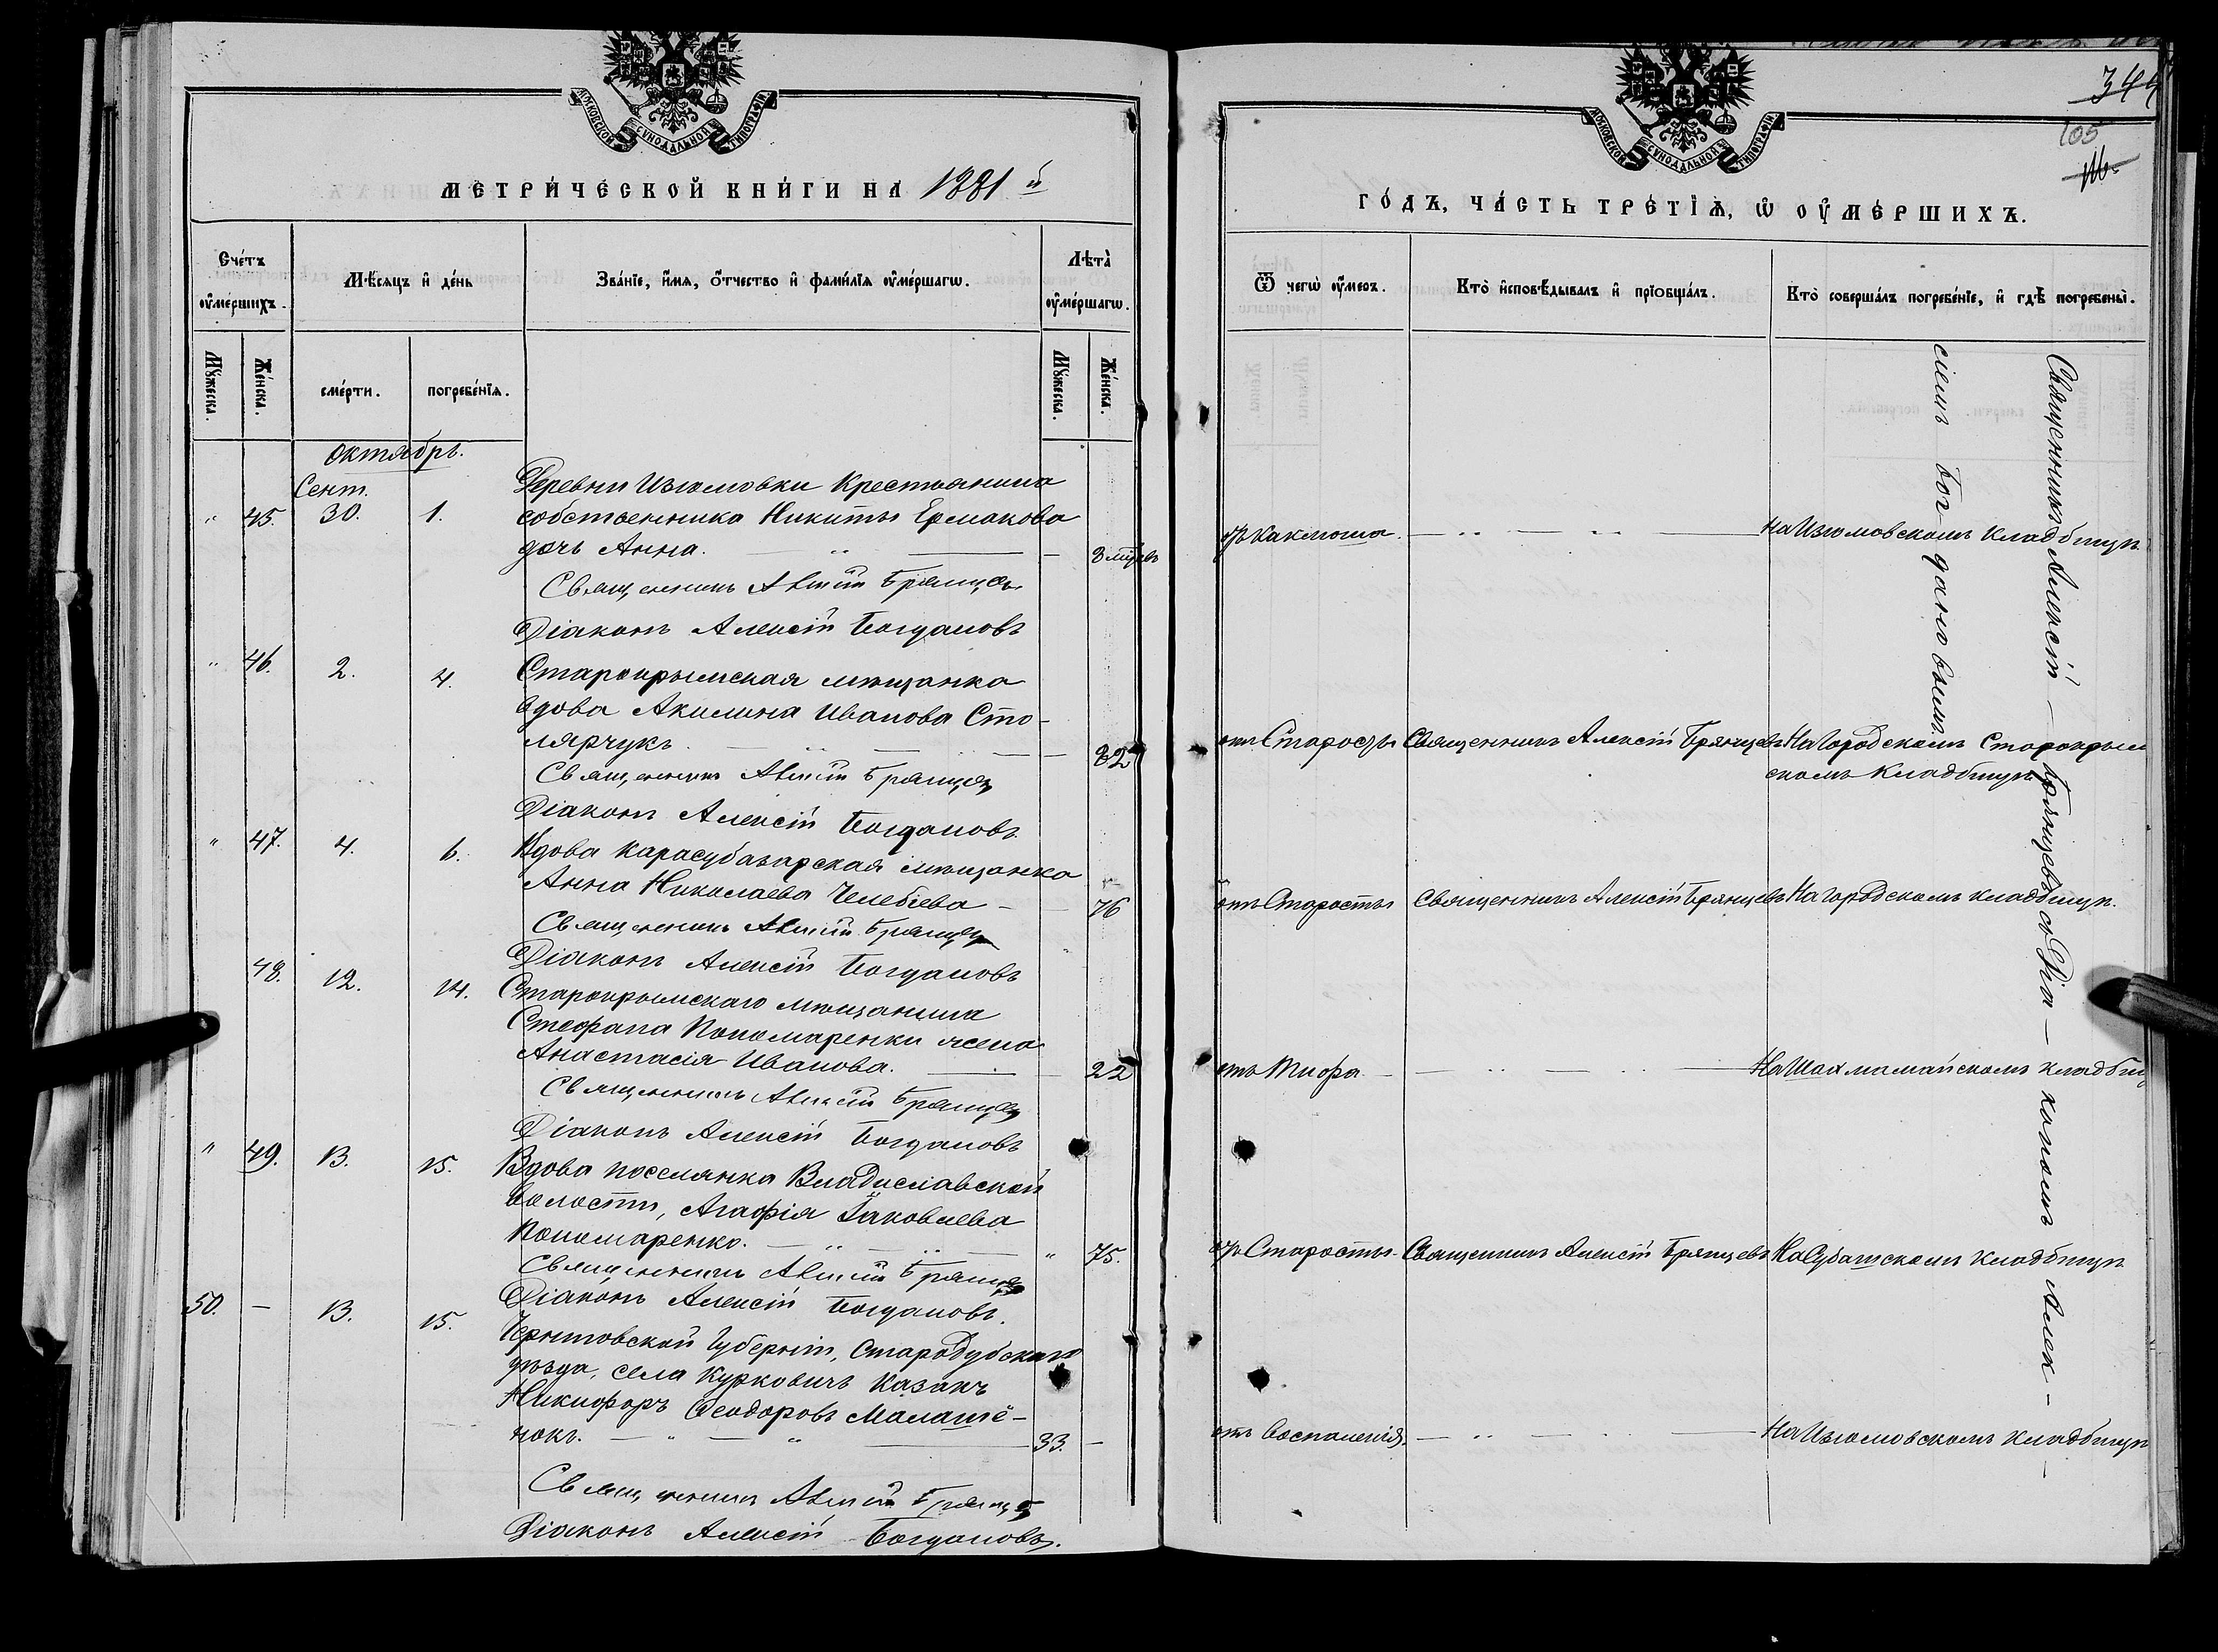 МОСКОВСКОЙ СѴНОДАЛЬНОЙ ТИПОГРАФІИ
МЕТРИ́ЧЕСКОЙ КНИ́ГИ НА 1881 й
Сче́тъ ᲂу҆ме́ршихъ.
Мѣ́сяцъ и҆ де́нь
Зва́нїе, и҆́мѧ, ѻ҆́тчество и҆ фами́лїѧ ᲂу҆ме́ршагѡ.
Лѣта̀ ᲂу҆ме́ршагѡ.
Мꙋ́жеска.
Же́нска.
сме́рти.
погребе́нїѧ.
Мꙋ́жеска.
Же́нска.
октябрь.
Сент.
Деревни Изюмовки Крестьянина
" 45. 30. 1. собственника Никиты Ермакова
дочь Анна. — " — 8 мцевъ
Священникъ Алексій Брянцевъ
Діаконъ Алексій Богдановъ
" 46. 2. 4. Старокрымская мѣщанка
вдова Акилина Иванова Сто-
лярчукъ. — " — 82
Священникъ Алексій Брянцевъ
Діаконъ Алексій Богдановъ
" 47. 4. 6. Вдова Карасубазарская мѣщанка
Анна Николаева Челебіева — 76
Священникъ Алексій Брянцевъ
Діаконъ Алексій Богдановъ
48. 12. 14. Старокрымскаго мѣщанина
Стефана Пономаренки жена
Анастасія Иванова. — 22
Священникъ Алексій Брянцевъ
Діаконъ Алексій Богдановъ
" 49. 13. 15. Вдова поселянка Владиславской
волости, Агафія Іаковлева
Пономаренко. — " — " 75.
Священникъ Алексій Брянцевъ
Діаконъ Алексій Богдановъ.
50. — 13. 15. Черниговской Губерніи, Стародубскаго
уѣзда, села Курковичъ Казакъ
Никифоръ Ѳеодоровъ Малашё-
нокъ. — " — " — 33. —
Священникъ Алексій Брянцевъ
Діаконъ Алексій Богдановъ.
МОСКОВСКОЙ СѴНОДАЛЬНОЙ ТИПОГРАФІИ
344
105
ГО́ДЪ, ЧА́СТЬ ТРЕ́ТЇѦ, Ѡ҆ ОУ҆МЕ́РШИХЪ.
Ѿ чегѡ̀ ᲂу҆́меръ.
Кто̀ и҆сповѣ́дывалъ и҆ прїѡбща́лъ.
Кто̀ соверша́лъ погребе́нїе, и҆ гдѣ̀ погребены̀.
— " — " — На Изюмовскомъ кладбищѣ
отъ Старости Священникъ Алексій Брянцевъ На Городскомъ Старокрым
скомъ Кладбищѣ
отъ Старости Священникъ Алексій Брянцевъ На городскомъ кладбищѣ.
отъ Тифа — " — На Шахмамайскомъ кладбищ
отъ Старости Священникъ Алексій Брянцевъ На Субашскомъ Кладбищѣ
отъ Воспаленія. — " — На Изюмовскомъ кладбищѣ
Священникъ Алексій — Брянцевъ съ Діа — кономъ Алек —
сіемъ Богдановымъ